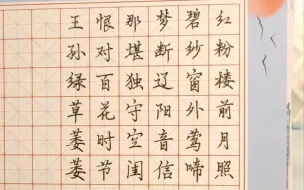 红粉楼前月照
碧纱窗外莺啼
梦断辽阳音信
那堪独守空闺
恨对百花时节
王孙绿草萋萋